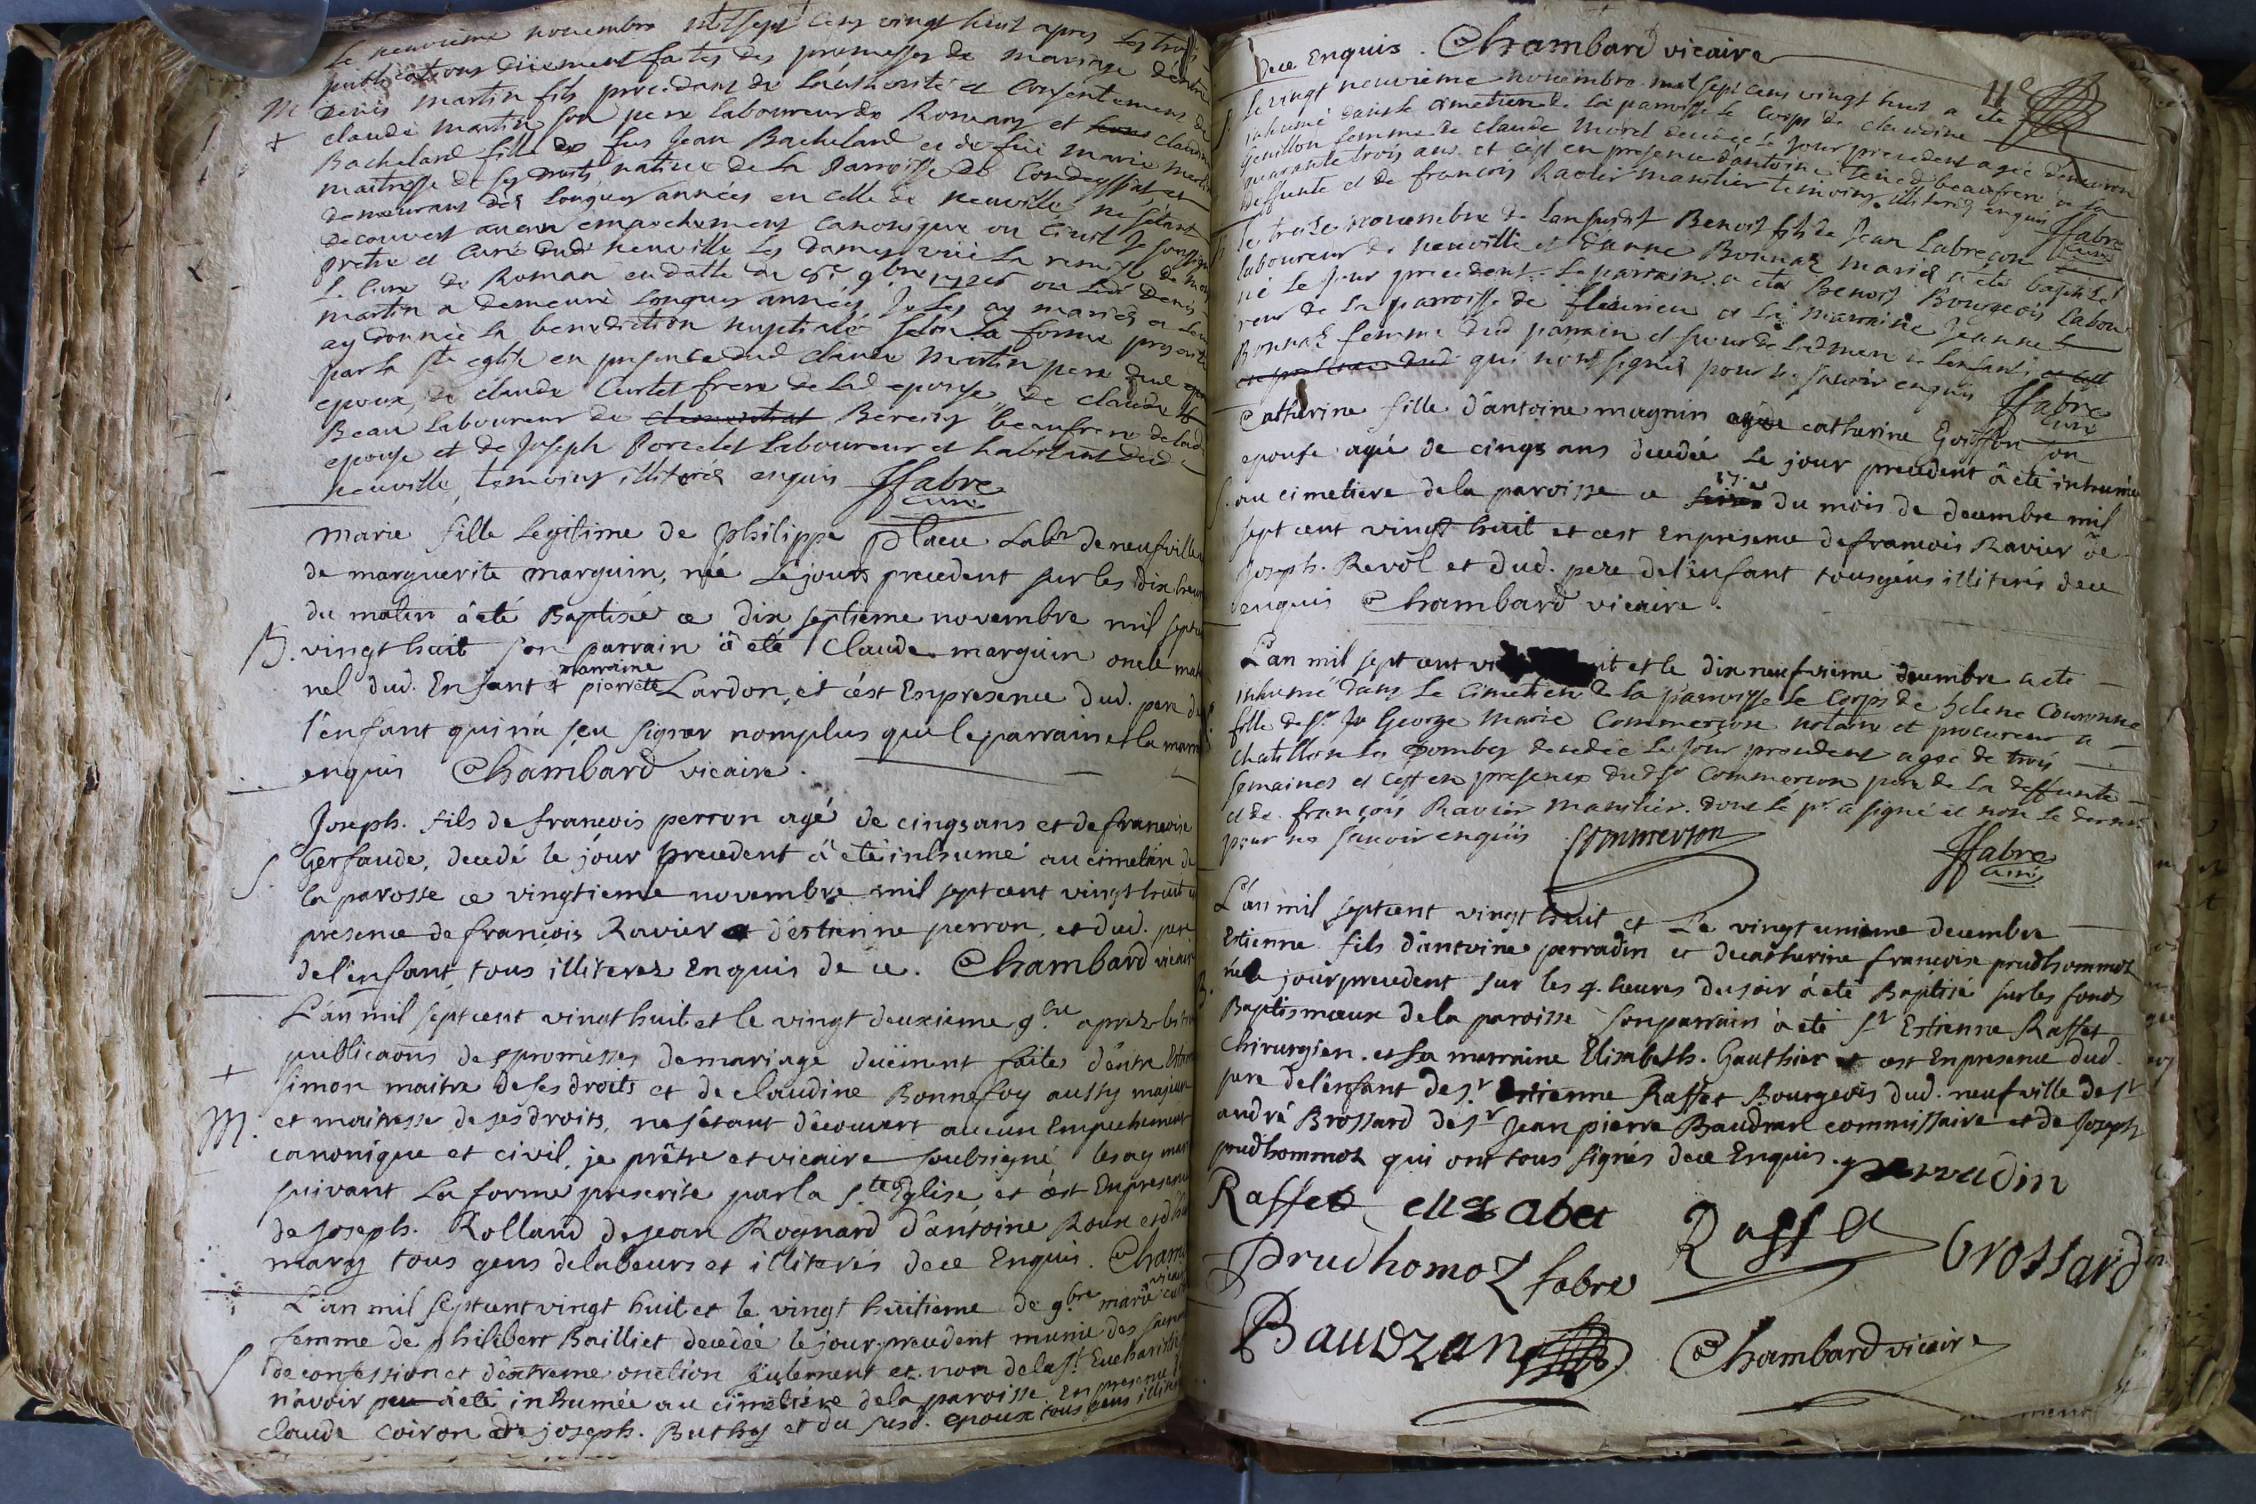 Le neuvieme novembre mil sept cens vingt huit apres les trois
publications düement faites des promesses de mariage d'entre
M denis martin fils procedant de l'authorité et consentement de
+ claude martin son pere laboureur de Romans et claudine
Bachelard fille de feu Jean Bachelard et de füe marie
maitresse de ses droits native de la parroisse de Condeyssiat et
demeurant dès longues années en celle de neuville ne s'étant
decouvert aucun empeschement canonique ou civil Je soussigné
prêtre et curé dud neuville les dames vüe la remise de Mr
le curé de Roman en datte du 8e 9bre 1728 ou led denis
martin a demeuré longues années, Je les ay mariés et leur
ay donnée la benediction nuptiale selon la forme prescrite
par la ste eglise en presence dud claude martin pere dud
epoux, de claude Curtet frere de lad epouse, de claude
Beau laboureur de Bereisy beaufrere de lad
epouse et de Joseph Porcelet laboureur et habitant dud
neuville, temoins illiterés enquis ffabre
curé
marie fille legitime de philippe place labr de neufville
de marguerite marguin, née le jours precedent sur les dix heures
du matin à été Baptisée ce dix septieme novembre mil sept
B. vingt huit son parrain à été Claude marguin oncle mater
marraine
nel dud. Enfant et pierrete Lardon, et c'est Enpresence dud. pere de
l'enfant qui n'a sçu signer nomplus que le parrain et la marr
enquis Chambard vicaire.
Joseph. fils de francois perron agé de cinqs ans et de francoise
S. Gerfaude, decedé le jour precedent à été inhumé au cimetiere de
la parosse ce vingtieme novembre mil sept cent vingt huit
presence de francois Ravier et d'estienne perron, et dud. pere
de l'enfant, tous illiterez Enquis de ce. Chambard vicaire
L'an mil sept cent vingt huit et le vingt deuxieme 9bre aprez les
publicaons des promesses de mariage duëment faites d'entre
+ simon maitre de ses droits et de claudine Bonnefoy aussy majeure
M. et maitresse de ses droits, ne s'étant decouvert aucun Empechement
canonique et civil, je prêtre et vicaire soubsigné, les ay mar
suivant la forme prescrite par la ste Eglise et c'est Enpresence
de joseph. Rolland de jean Rognard d'antoine Roux et
mary tous gens de labeurs et illiterés de ce Enquis. Cham
vicaire
L'an mil septcent vingt huit et le vingt huitieme de 9bre marie
femme de philibert Bailliet decedée le jour precedent munie des
S de confession et d'extreme onction seulement et non de la ste Eucharistie
n'avoir peu à été inhumée au cimetiére de la paroisse En presence
claude coiron de joseph. Buthy et du susd. epoux tous gens illite
de ce Enquis. Chambard vicaire
11e
Le vingt neuvieme novembre mil sept cens vingt huit a été
inhumé dans le cimetiere de la parroisse le corps de claudine
Genillon femme de claude Morel decedée le jour precedent agée denviron
quarante trois ans et c'est en presence dantoine beaufrere de la
deffunte et de françois Ravier manilier temoins illiterés enquis ffabre
curé
le treze novembre de l'an susdit Benoit fils de Jean Labrecon
laboureur de neuville et danne Bonnaz mariés a été baptisé
né le jour precedent. le parrain a eté Benoit Bourgeois labou
reur de la parroisse de fleurieu et la marraine Jeanne
Bonnaz femme dud parrain et sœur de lad mere de lenfant
qui n'ont signés pour ne sçavoir enquis ffabre
curé
Catherine fille d'antoine magnin catherine Goiffon son
epouse agée de cinqs ans decedée le jour precedent à été inhumée
17.e
S. au cimetiere de la paroisse ce du mois de decembre mil
sept cent vingt huit et c'est Enpresence de francois Ravier de
joseph. Revol et dud. pere de l'enfant tous gens illiterés de ce
enquis Chambard vicaire.
L'an mil sept cent vi uit et le dix neufvieme decembre a eté
inhumé dans le cimetiere de la parroisse le corps de helene Couronne
fille de sr George Marie Commerçon notaire et procureur a
chatillon les Dombes decedée le jour precedent agée de trois
semaines et c'est en presence dud sr Commercon pere de la deffunte
et de françois Ravier manilier. dont le pr a signé et non le dernier
pour ne scavoir enquis Commerson
ffabre
curé
L'an mil septcent vingt huit et Le vingt unieme decembre
Estienne fils d'antoine perradin et de catherine francoise prudhommoz
B. né le jour precedent sur les 4. heures du soir à eté Baptisé sur les fonds
Baptismœux de la paroisse Son parrain à eté sr Estienne Raffet
chirurgien. et sa marraine Elisabeth. Gauthier et c'est Enpresence dud.
pere de l'enfant de sr. Estienne Raffet Bourgeois dud. neufville de sr
andré Brossard de sr jean pierre Baudran commissaire et de joseph
prudhommoz qui ont tous signés de ce Enquis. perradin
Raffet ellisabet Raffet Brossard
Prudhomoz fabre
Baudran Chambard vicaire